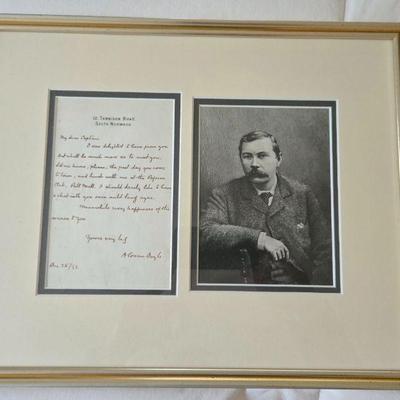 12, Tennison Road,
South Norwood.
My dear Captain
I was delighted to hear from you
but shall be much more so to meet you.
Let me know, please, the first day you come
to town, and lunch with me at the Reform
Club, Pall Mall. I should dearly like to have
a chat with you once mild of eyes.
Meanwhile every happiness of the
season to you
Yours very truly
A Conan Doyle
Dec 26/92